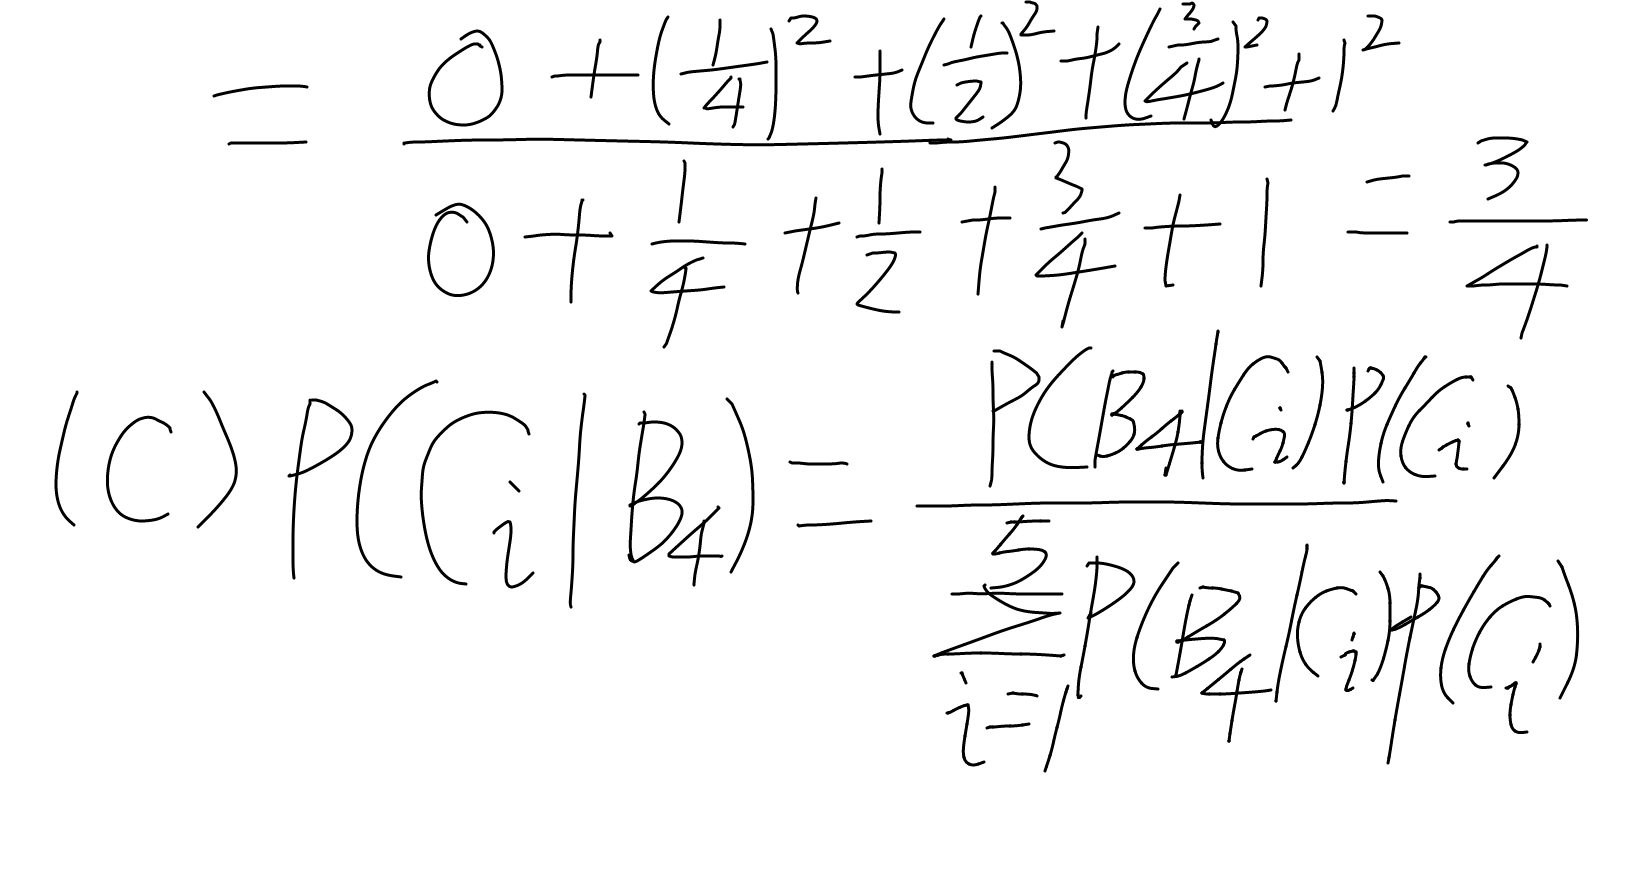 = (0 + (1/4)² + (1/2)² + (3/4)² + 1²) / (0 + 1/4 + 1/2 + 3/4 + 1) = 3/4
(C) P(Ci | B4) = P(B4 | Ci) P(Ci) / ∑_{i=1}^{5} P(B4 | Ci) P(Ci)